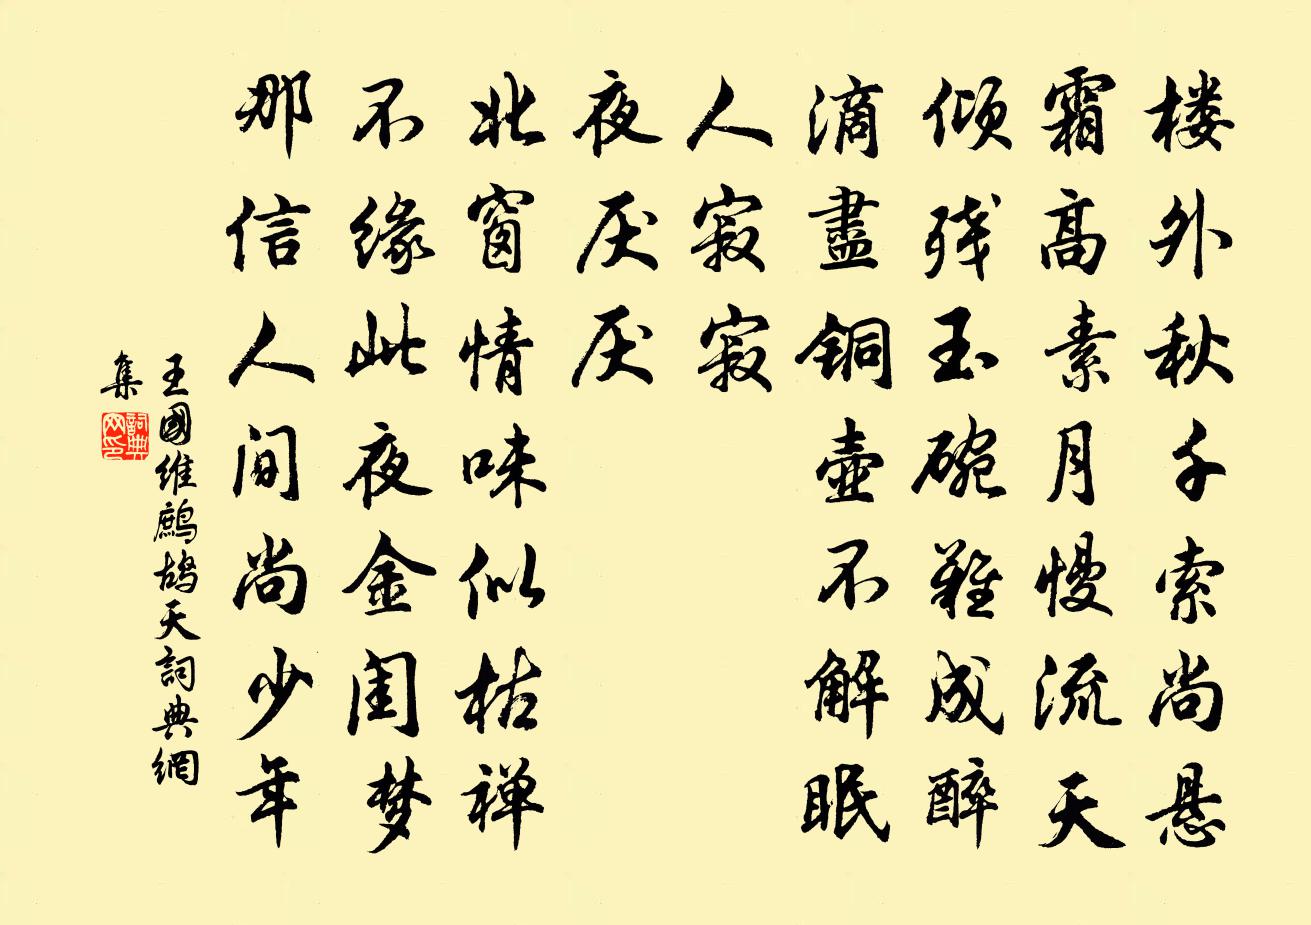 楼外秋千索尚悬
霜高素月慢流天
倾残玉碗难成醉
滴盡铜壶不解眠
人寂寂
夜厌厌
北窗情味似枯禅
不缘此夜金闺梦
那信人间尚少年
王國维鹧鸪天詞典網
集
詞典
网印